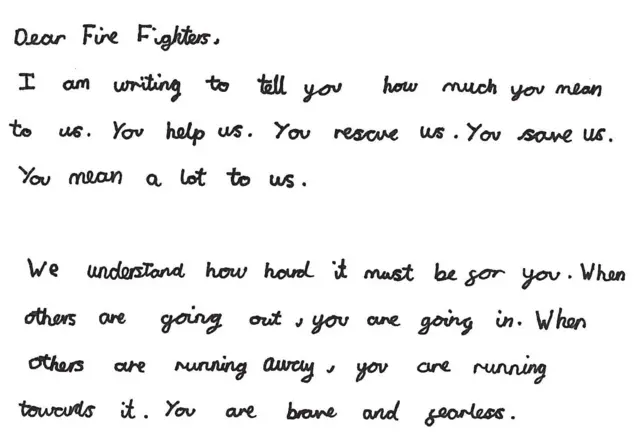 Dear Fire Fighters,
I am writing to tell you how much you mean
to us. You help us. You rescue us. You save us.
You mean a lot to us.
We understand how hard it must be for you. When
others are going out, you are going in. When
others are running away, you are running
towards it. You are brave and fearless.